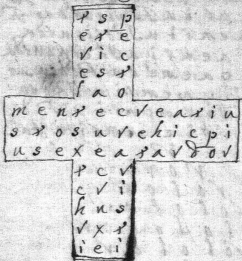 r s p
e r e
v i c
e s r
l a o
m e n r e c v e a r i u
s r o s u v e h i c p i
u s e x e a r a v d o v
r c v
c v i
h n s
v x r
i e i